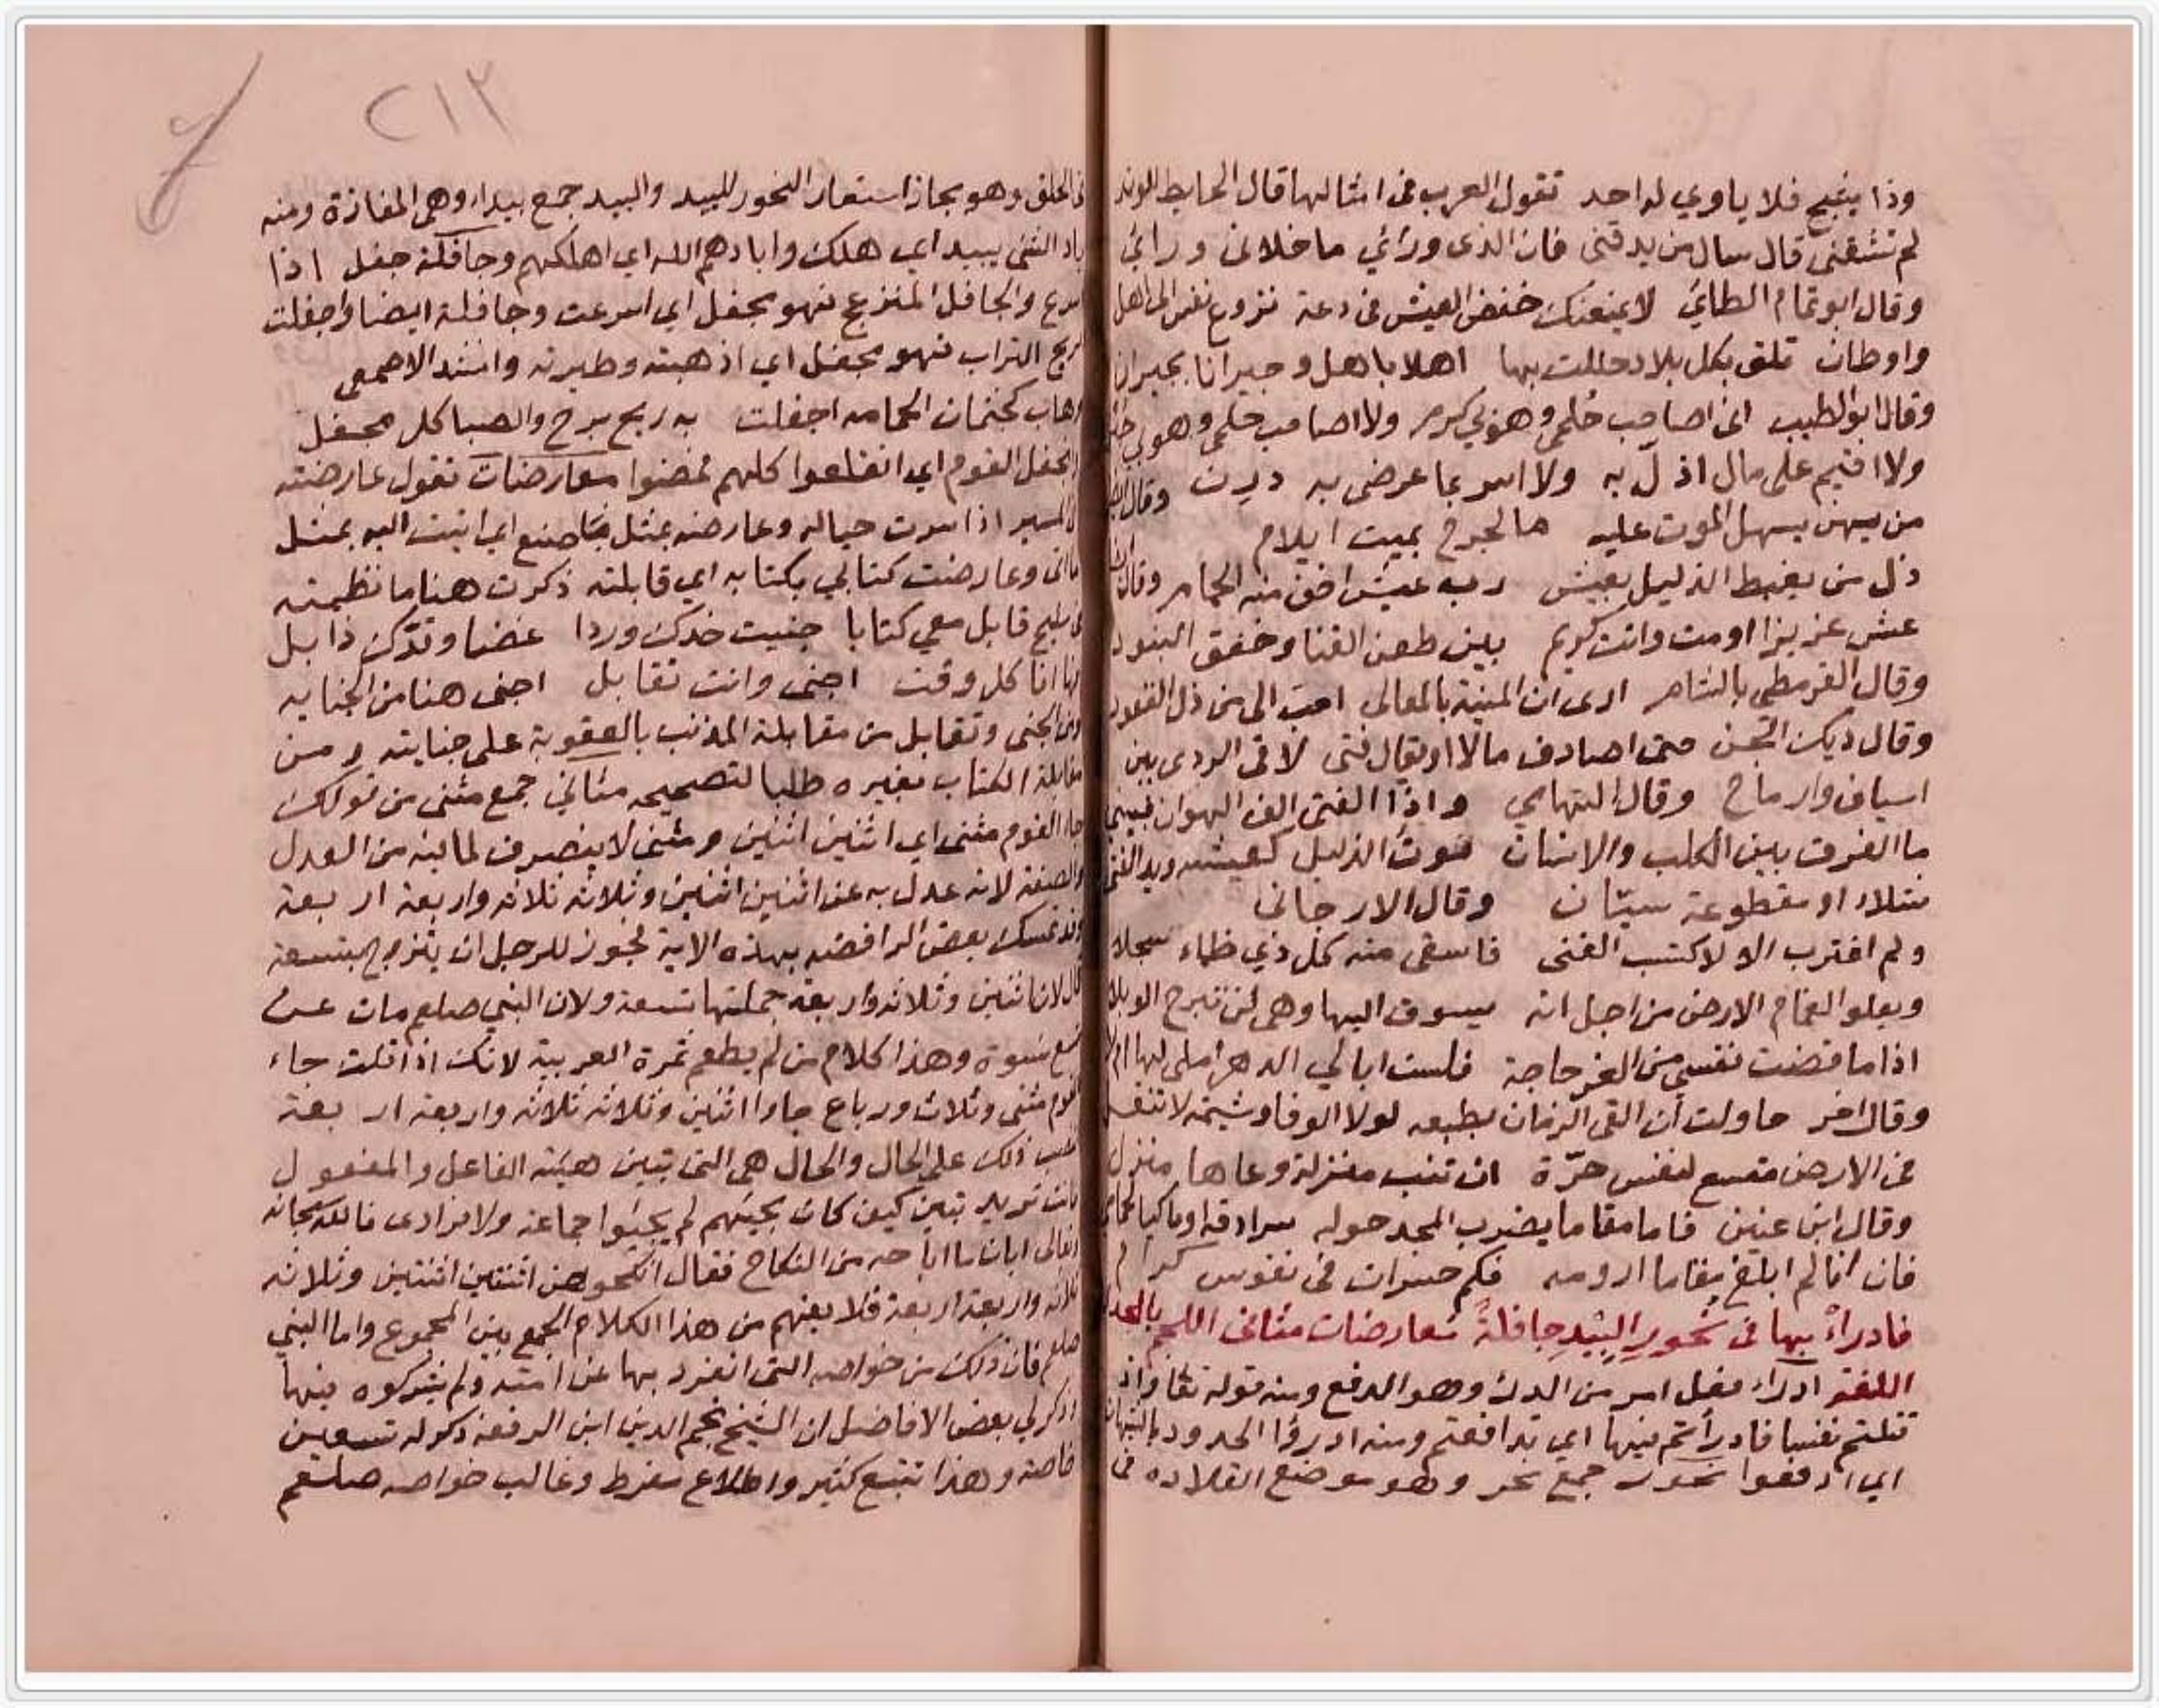 وذا يشج فلا ياوي له احد تقول العرب في امثالها قال الحايط للوتد
لم تشقني قال سال من يدقني فان الذي ورائي ما خلاني ورائي
وقال ابو تمام الطائي لا يمنعنك خفض العيش في دعة نزوع نفس الى اهل
واوطان تلق بكل بلاد حللت بها اهلا باهل وجيرانا بجيران
وقال ابو الطيب اني اصاحب حلمي وهو بي كرم ولا اصاحب حلمي وهو بي
ولا اقيم على مال اذلّ به ولا اسر بما عرضي به درن وقال
من يهن يسهل الموت عليه ما لجرح بميت ايلام
ذل من يغبط الذليل بعيش رب عيش اخف منه الحمام وقال
عش عزيزا او مت وانت كريم بين طعن القنا وخفق البنود
وقال القرمطي بالشام ارى ان المنية بالمعالي احب الي من ذل القعود
وقال ديك الجن حتى اصادف مالا او يقال فتى لاقى الردى بين
اسياف وارماح وقال التهامي واذا الفتى الف الهوان فبيني
ما الفرق بين الكلب والانسان موت الذليل كعيشه ويد الفتى
شلاء او مقطوعة سيّان وقال الارجاني
ولم اغترب الا لاكتسب الغنى فاسقي منه كل ذي ظماء سجلا
ويعلو الغمام الارض من اجل انه يسوق اليها وهي لن تبرح الوبلا
اذا ما قضت نفسي من العز حاجة فلست ابالي الدهر املى لها ام لا
وقال اخر حاولت ان القى الزمان بطبعه لولا الوفا وشيمة لا تنقل
في الارض متسع لنفس حرّة ان تنب منزلة وعاها منزل
وقال ابن عنين فاما مقاما يضرب المجد حوله سرادقه او باكيا لحمام
فان انا لم ابلغ مقاما ارومه فكم حسرات في نفوس كرام
فادراْ بها في نحورِ البِيْدِ جافلةً معارضات مثاني اللجم بالجدل
اللغة ادراء فعل امر من الدرء وهو الدفع ومنه قوله تعا واذ
قتلتم نفسا فادرأتم فيها اي تدافعتم ومنه ادرؤا الحدود بالشبهات
اي ادفعوا نحور جمع نحر وهو موضع القلاده في
٢١٣
الحلق وهو مجاز استعار النحور للبيد والبيد جمع بيداء وهي المفازة ومنه
باد الشي يبيد اي هلك وابادهم الله اي اهلكهم وجافلة جفل اذا
اسرع والجافل المنزعج فهو مجفل اي اسرعت وجافلة ايضا واجفلت
الريح التراب فهو مجفل اي اذهبته وطيرته وانشد الاصمعي
وهاب كجثمان الحمامه اجفلت به ريح برح والصبا كل مجفل
انجفل القوم اي انقلعوا كلهم فمضوا معارضات تقول عارضته
في المسير اذا سرت حياله وعارضته بمثل ما صنع اي اتيت اليه بمثل
ما اتى وعارضت كتابي بكتابه اي قابلته ذكرت هنا ما نظمته
في مليح قابل معي كتابا جنيت خدك وردا غضا وقدّك ذابل
ها انا كل وقت اجنى وانت تقابل اجنى هنا من الجنايه
ومن الجنى وتقابل من مقابلة المذنب بالعقوبة على جنايته ومن
مقابلة الكتاب بغيره طلبا لتصحيحه مثاني جمع مثنى من قولك
جاء القوم مثنى اي اثنين اثنين ومثنى لا ينصرف لما فيه من العدل
والصفة لانه عدل به عن اثنين اثنين وثلاثه ثلاثه واربعة اربعة
وقد تمسك بعض الرافضه بهذه الاية لجوز للرجل ان يتزوج بتسعة
قال لان اثنين وثلاثه واربعة جملتها تسعة ولان النبي صلعم مات عن
تسع نسوة وهذا كلام من لم يطعم ثمرة العربية لانك اذا قلت جاء
القوم مثنى وثلاث ورباع جاوا اثنين وثلاثه ثلاثه واربعة اربعة
ذلك على الحال والحال هي التي تبين هيئة الفاعل والمفعول
تريد تبين كيف كان مجيئهم لم يجيئوا جماعة ولا فرادى فالله سبحانه
وتعالى ابان ما اباحه من النكاح فقال انكحوهن اثنتين اثنتين وثلاثه
ثلاثه واربعة اربعة فلا يفهم من هذا الكلام الجمع بين المجموع واما النبي
صلعم فان ذلك من خواصه التي انفرد بها عن امته ولم يشركوه فيها
ذكر لي بعض الافاضل ان الشيخ نجم الدين ابن الرفعة ذكر له تسعين
خاصة وهذا تتبع كثير واطلاع مفرط وغالب خواصه صلعم